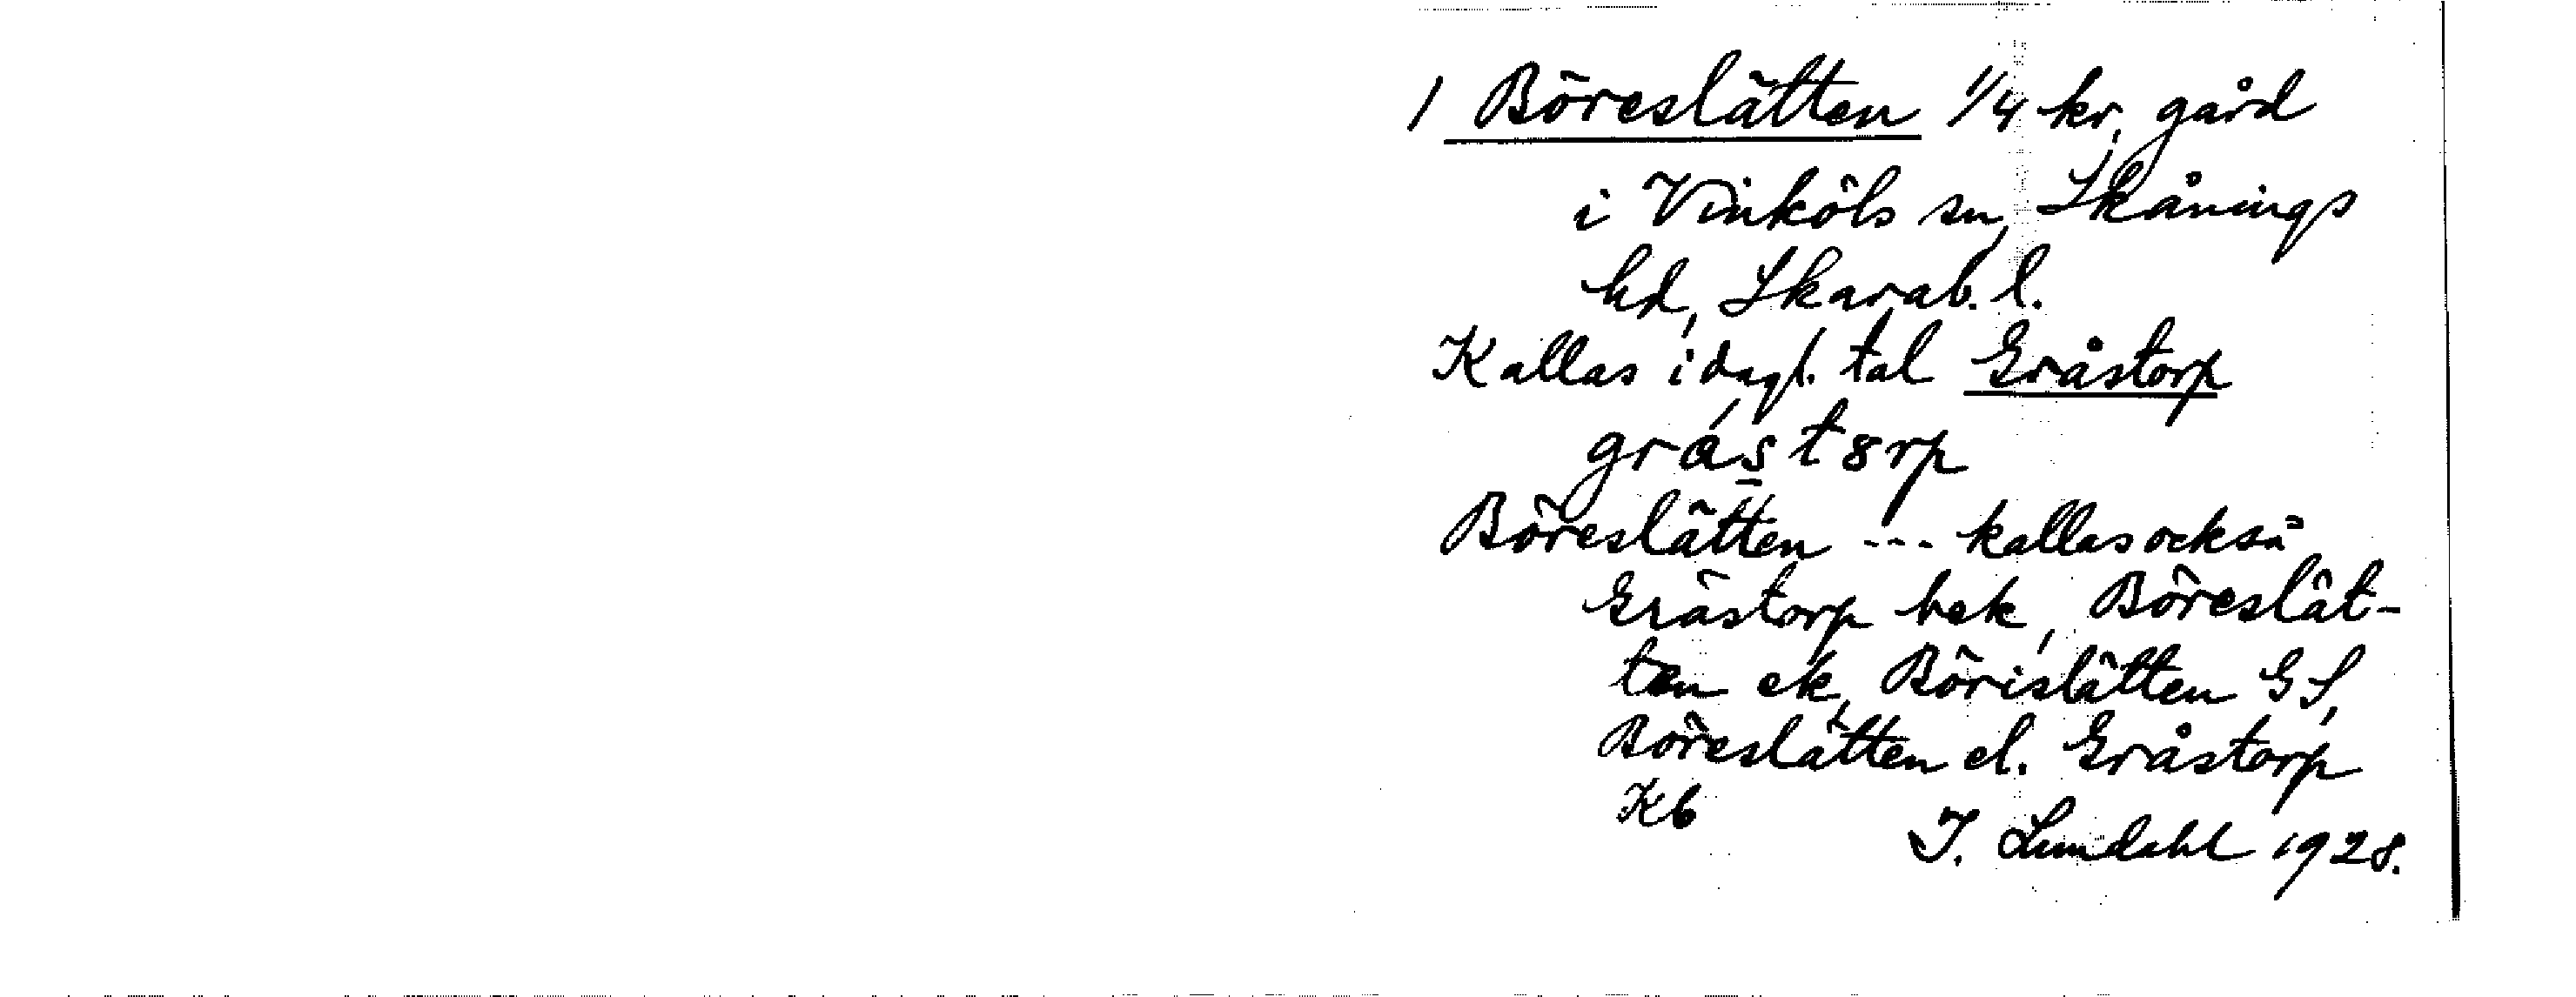 1 Böreslätten 1/4 kr, gård
i Vinköls sn, Skånings
hd, Skarab. l.
Kallas i dagl. tal Gråstorp
grástȣrp
Böreslätten --- kallas också
Gråstorp bek, Böreslät-
ten ek, Börislätten GS,
Böreslätten el. Gråstorp
Kb
I. Lundahl 1928.